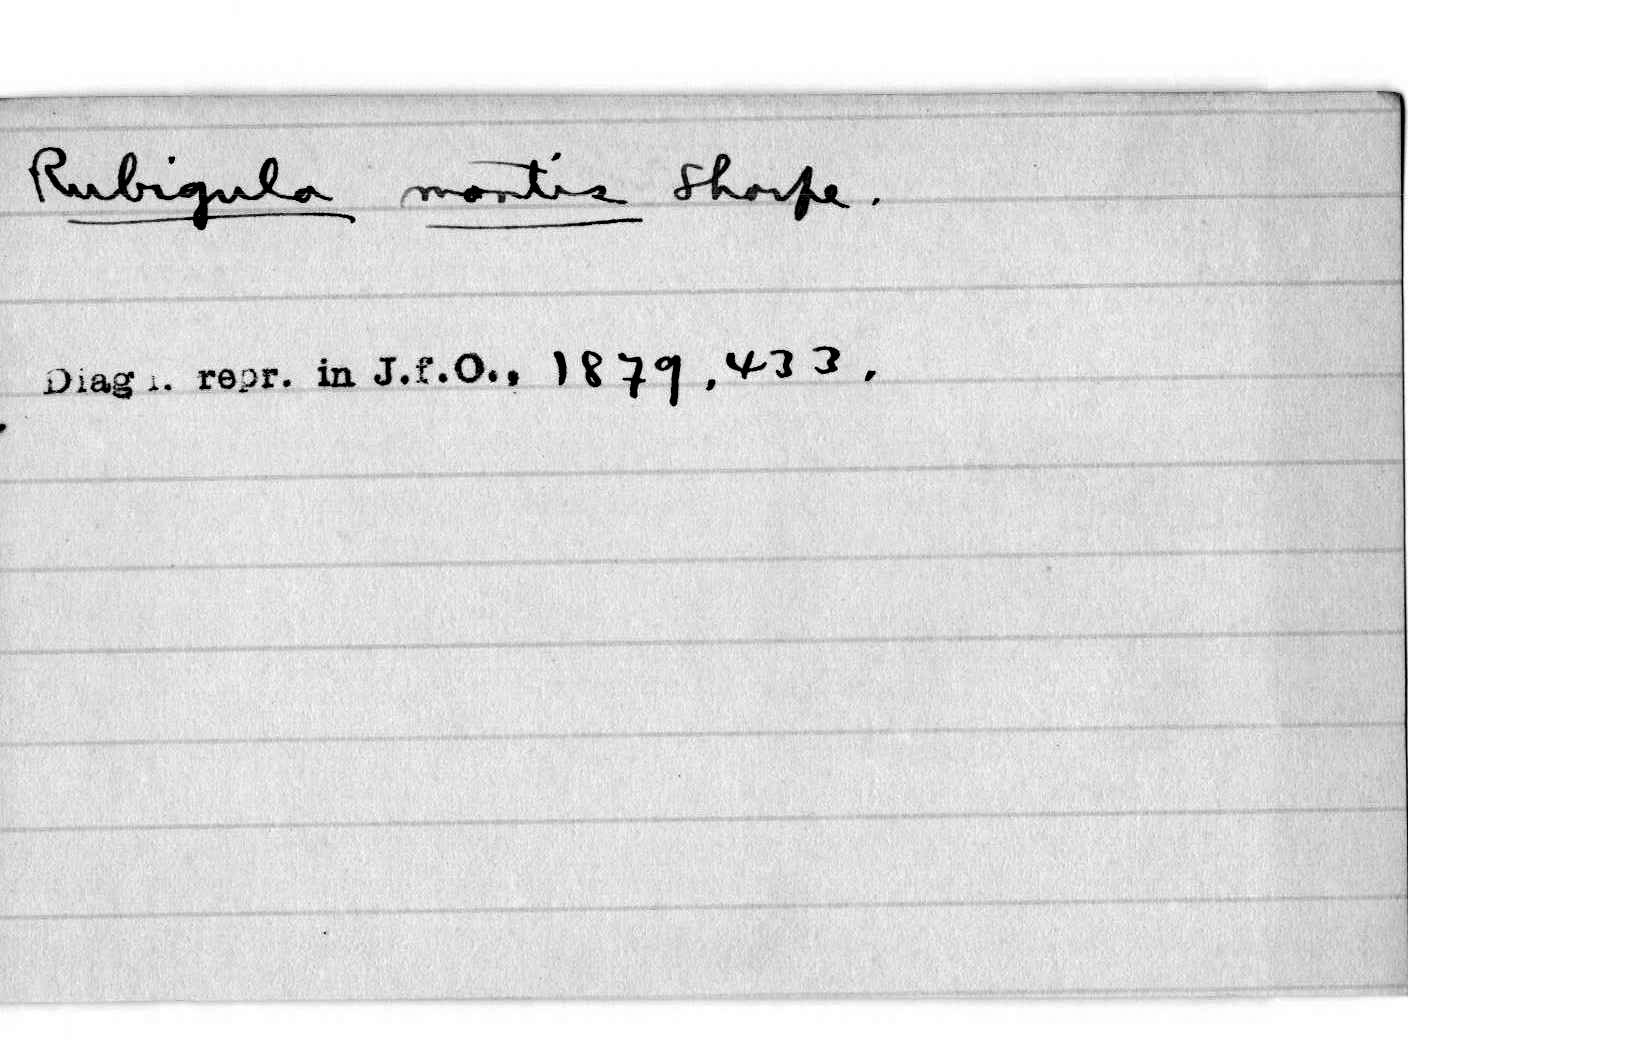 Rubigula montis Sharpe.
Diagn. repr. in J.f.O., 1879, 433.